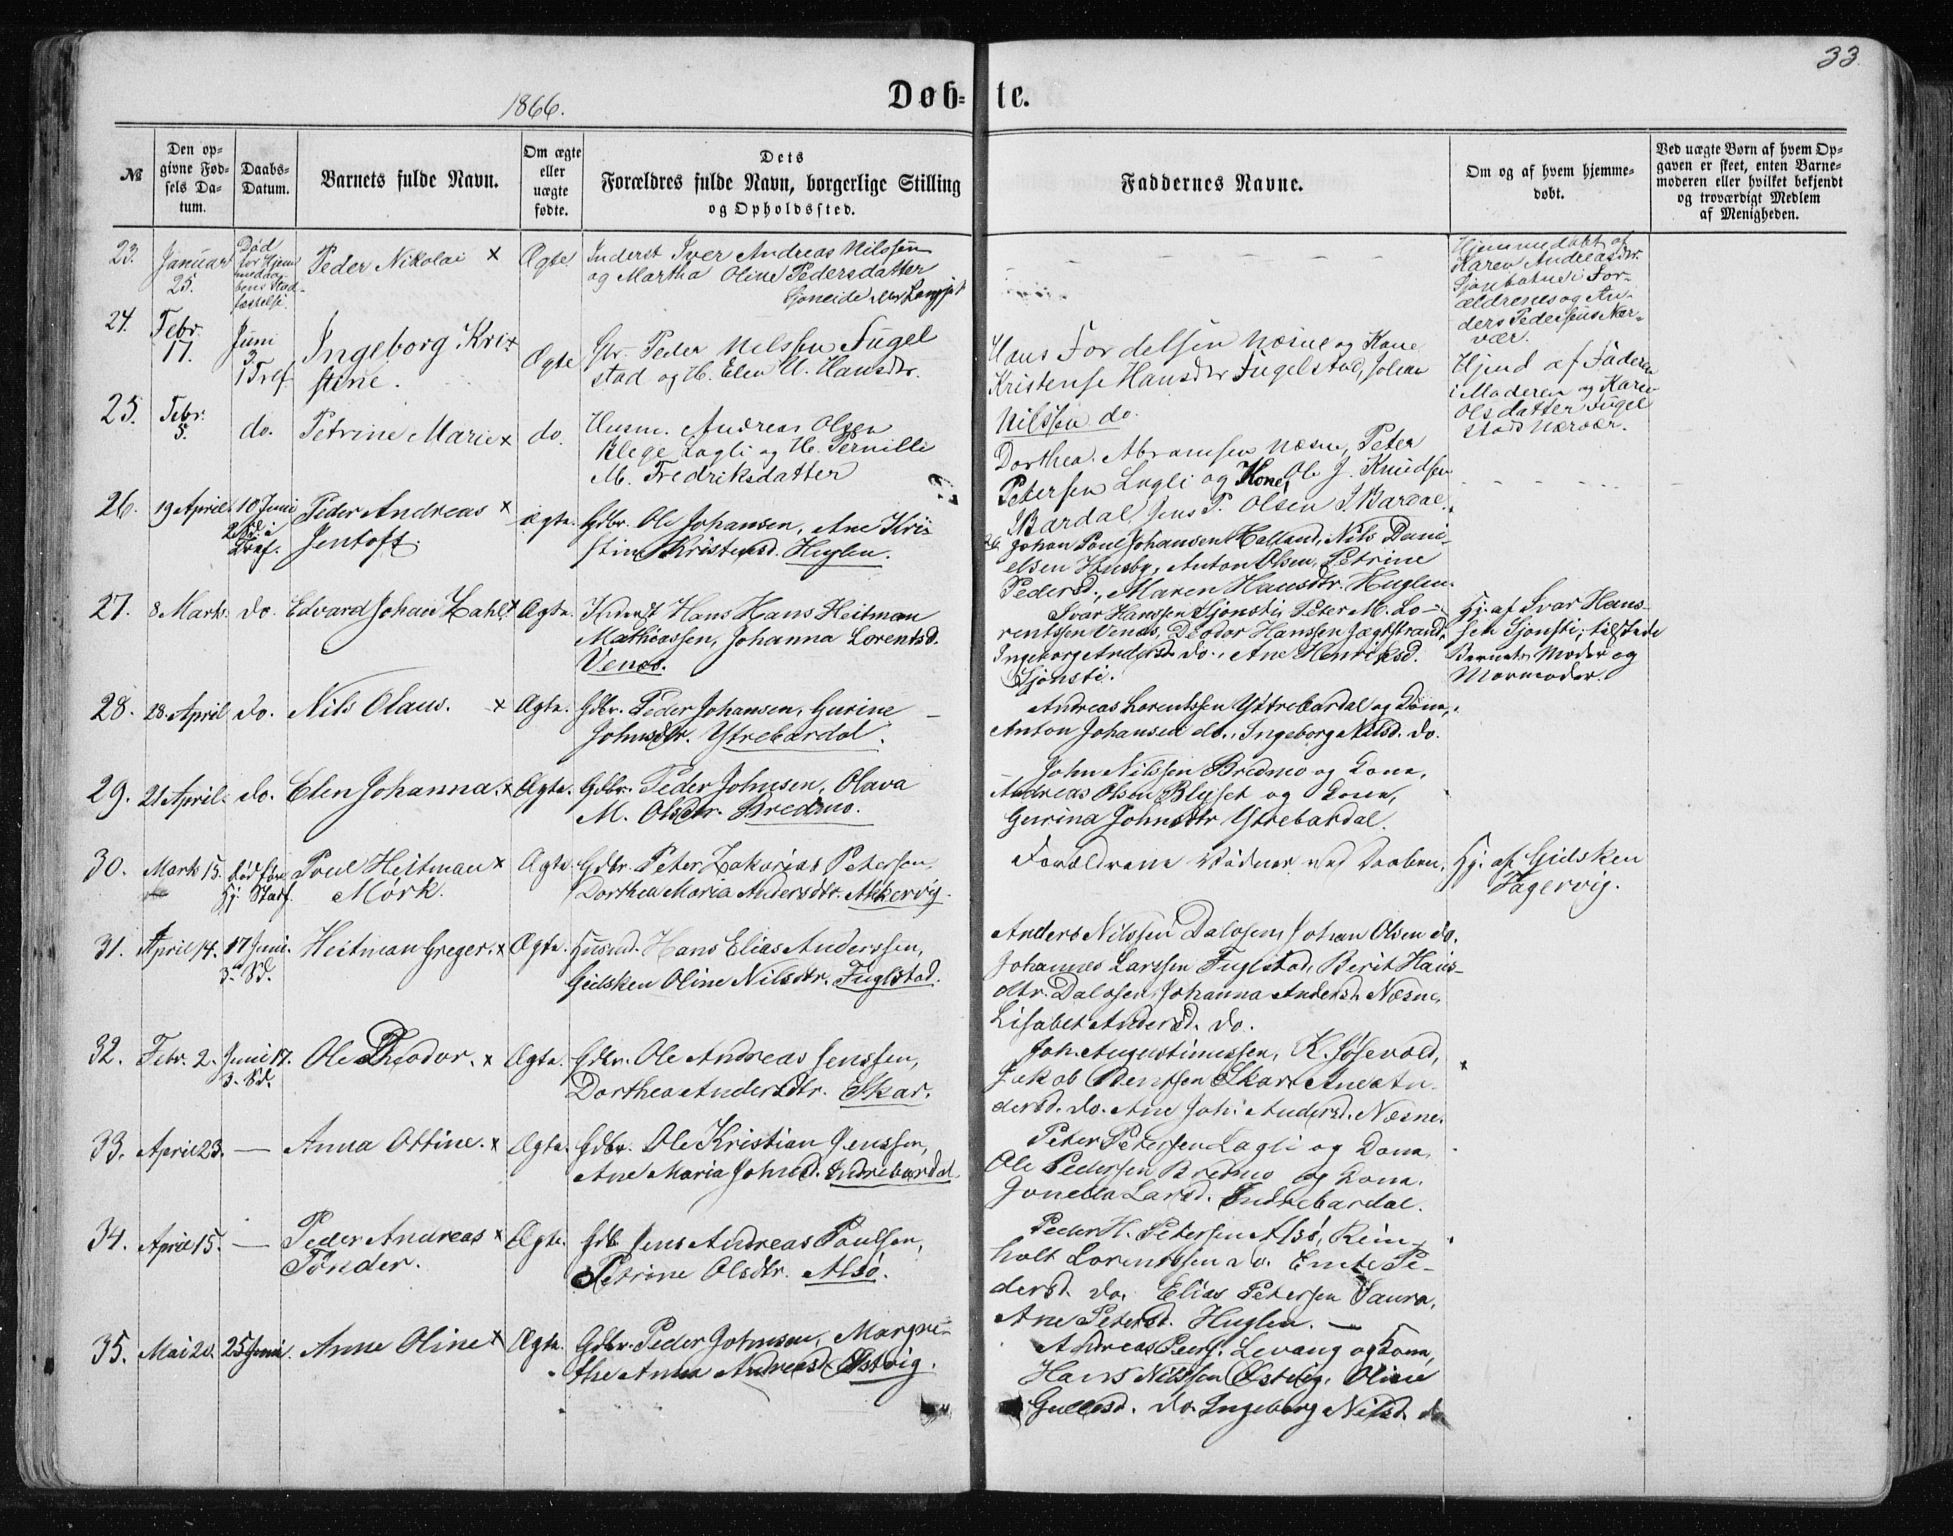 33
1866.
Døb- te.
№
Den op-
givne Fød-
sels Da-
tum.
Daabs-
Datum.
Barnets fulde Navn.
Om ægte
eller
uægte
fødte.
Dets
Forældres fulde Navn, borgerlige Stilling
og Opholdssted.
Faddernes Navne.
Om og af hvem hjemme-
døbt.
Ved uægte Børn af hvem Op-
gaven er skeet, enten Barne-
moderen eller hvilket bekjendt
og troværdigt Medlem
af Menigheden.
23. Januar 25. Død før Hjem- medaa- bens Stad- fæstelse. Peder Nikolai × Ægte
Inderst Iver Andreas Nilssen
og Martha Oline Pedersdatter
Hjemmedøbt af
Karen Andreasdr.
i For-
ældrenes og An-
ders Pedersens Nær-
vær.
24. Febr. 17. Juni 3 Ingeborg Kri- × stine. Ægte
Peder Nilssen Fugel
stad og H. Elen M. Hansdtr.
Hans Næsne og Kone
Hansdtr Fugelstad, Johan
Nilssen do.
Hjemd af Faderen
i Moderen og Karen
Olsdatter Fugel
stads Nærvær.
25. Febr. 5. do. Petrine Marie × do.
Husm. Andreas Olsen
Lagli og H. Pernille
M. Fredriksdatter
Dorthea Abramsen Næsne, Peter
Petersen Lagli og Kone, Ole J. Knudsen
Bardal, Jens P. Olsen I. Bardal.
26. 19 April. 10 Juni Peder Andreas × Jentoft. Ægte.
Gdbr. Ole Johansen, Ane Kri-
stine Kristensd. Huglen.
26 Johan Paul Johansen Halland, Nils Dani-
elsen Husby, Anton Olsen, Petrine
Pedersd., Maren Hansdtr. Huglen.
27. 8 Marts. do. Edvard Johan Dahl × Ægte.
Inderst Hans Hans Heitman
Mathiassen, Johanna Lorentsd.
Venes.
Ivar Hanssen Sjønsti, Peter M. Lo-
rentssen Venes, Deodor Hanssen Jægtstrand,
Ingeborg Andersd. do., Ane Henriksd.
Sjønsti.
Hj. af Ivar Hans-
sen Sjønsti, tilstede
Barnets Moder og
Mormoder.
28. 28 April do. Nils Olaus. × Ægte.
Gdbr. Peder Johansen, Gurine
Johnsdtr. Ytrebardal.
Andreas Lorentssen Ytrebardal og Kona,
Anton Johansen do., Ingeborg Nilsd. do.
29. 21 April. do. Elen Johanna. × Ægte.
Gdbr. Peder Johnsen, Olava
M. Olsdtr. Bredmo.
John Nilssen Bredmo og Kona,
Andreas Olsen og Kona,
Gurina Johnsdtr Ytrebardal.
30. Marts 15. død før Hj. Stadf. Poul Heitman × Mørk. Ægte.
Gdbr. Peter Zakarias Petersen,
Dorthea Maria Andersdtr. Akkervig.
Forældrene Vidner ved Daaben.
Hj. af Gidsken
Fagervig.
31. April 14. 17 Juni. 3. Sd. Heitman Greger. × Ægte.
Husmd. Hans Elias Anderssen,
Gidsken Oline Nilsdtr. Fuglstad.
Anders Nilssen Dalosen, Johan Olsen do.
Johannes Larssen Fuglstad, Berit Hans-
dtr. Dalosen, Johanna Andersd. Næsne,
Lisabet Andersd. do.
32. Febr. 2. Juni 17. 3. Sd. Ole Theodor. × Ægte.
Gdbr. Ole Andreas Jenssen,
Dorthea Andersdtr. Skar.
Joh. Augustinussen, K. Jøsevold,
Jakob Bentsen Skar, Ane An-
dersd. do. Ane Joh. Andersd. Næsne.
33. April 23. — Anna Ottine. × Ægte.
Gdbr. Ole Kristian Jenssen,
Ane Maria Johnsd. Indrebardal
Peter Petersen Lagli og Kona,
Ole Pedersen Bredmo og Kona.
Jonetta Larsd. Indrebardal.
34. April 15. — Peder Andreas × Tønder. Ægte.
Gdb Jens Andreas Poulsen,
Petrine Olsdtr. Alsø.
Peder H. Petersen Alsø, Rein-
holt Lorentssen do. Pe-
dersd. do. Elias Petersen Saura,
Ane Petersd. Huglen. —
35. Mai 20. 25 Juni. Anne Oline × Ægte.
Gdbr Peder Johnsen, Margre-
the Anna Andreasd. Østvig.
Andreas Levang og Kona,
Hans Nilssen Østvig, Oline
do. Ingeborg Nilsd. do